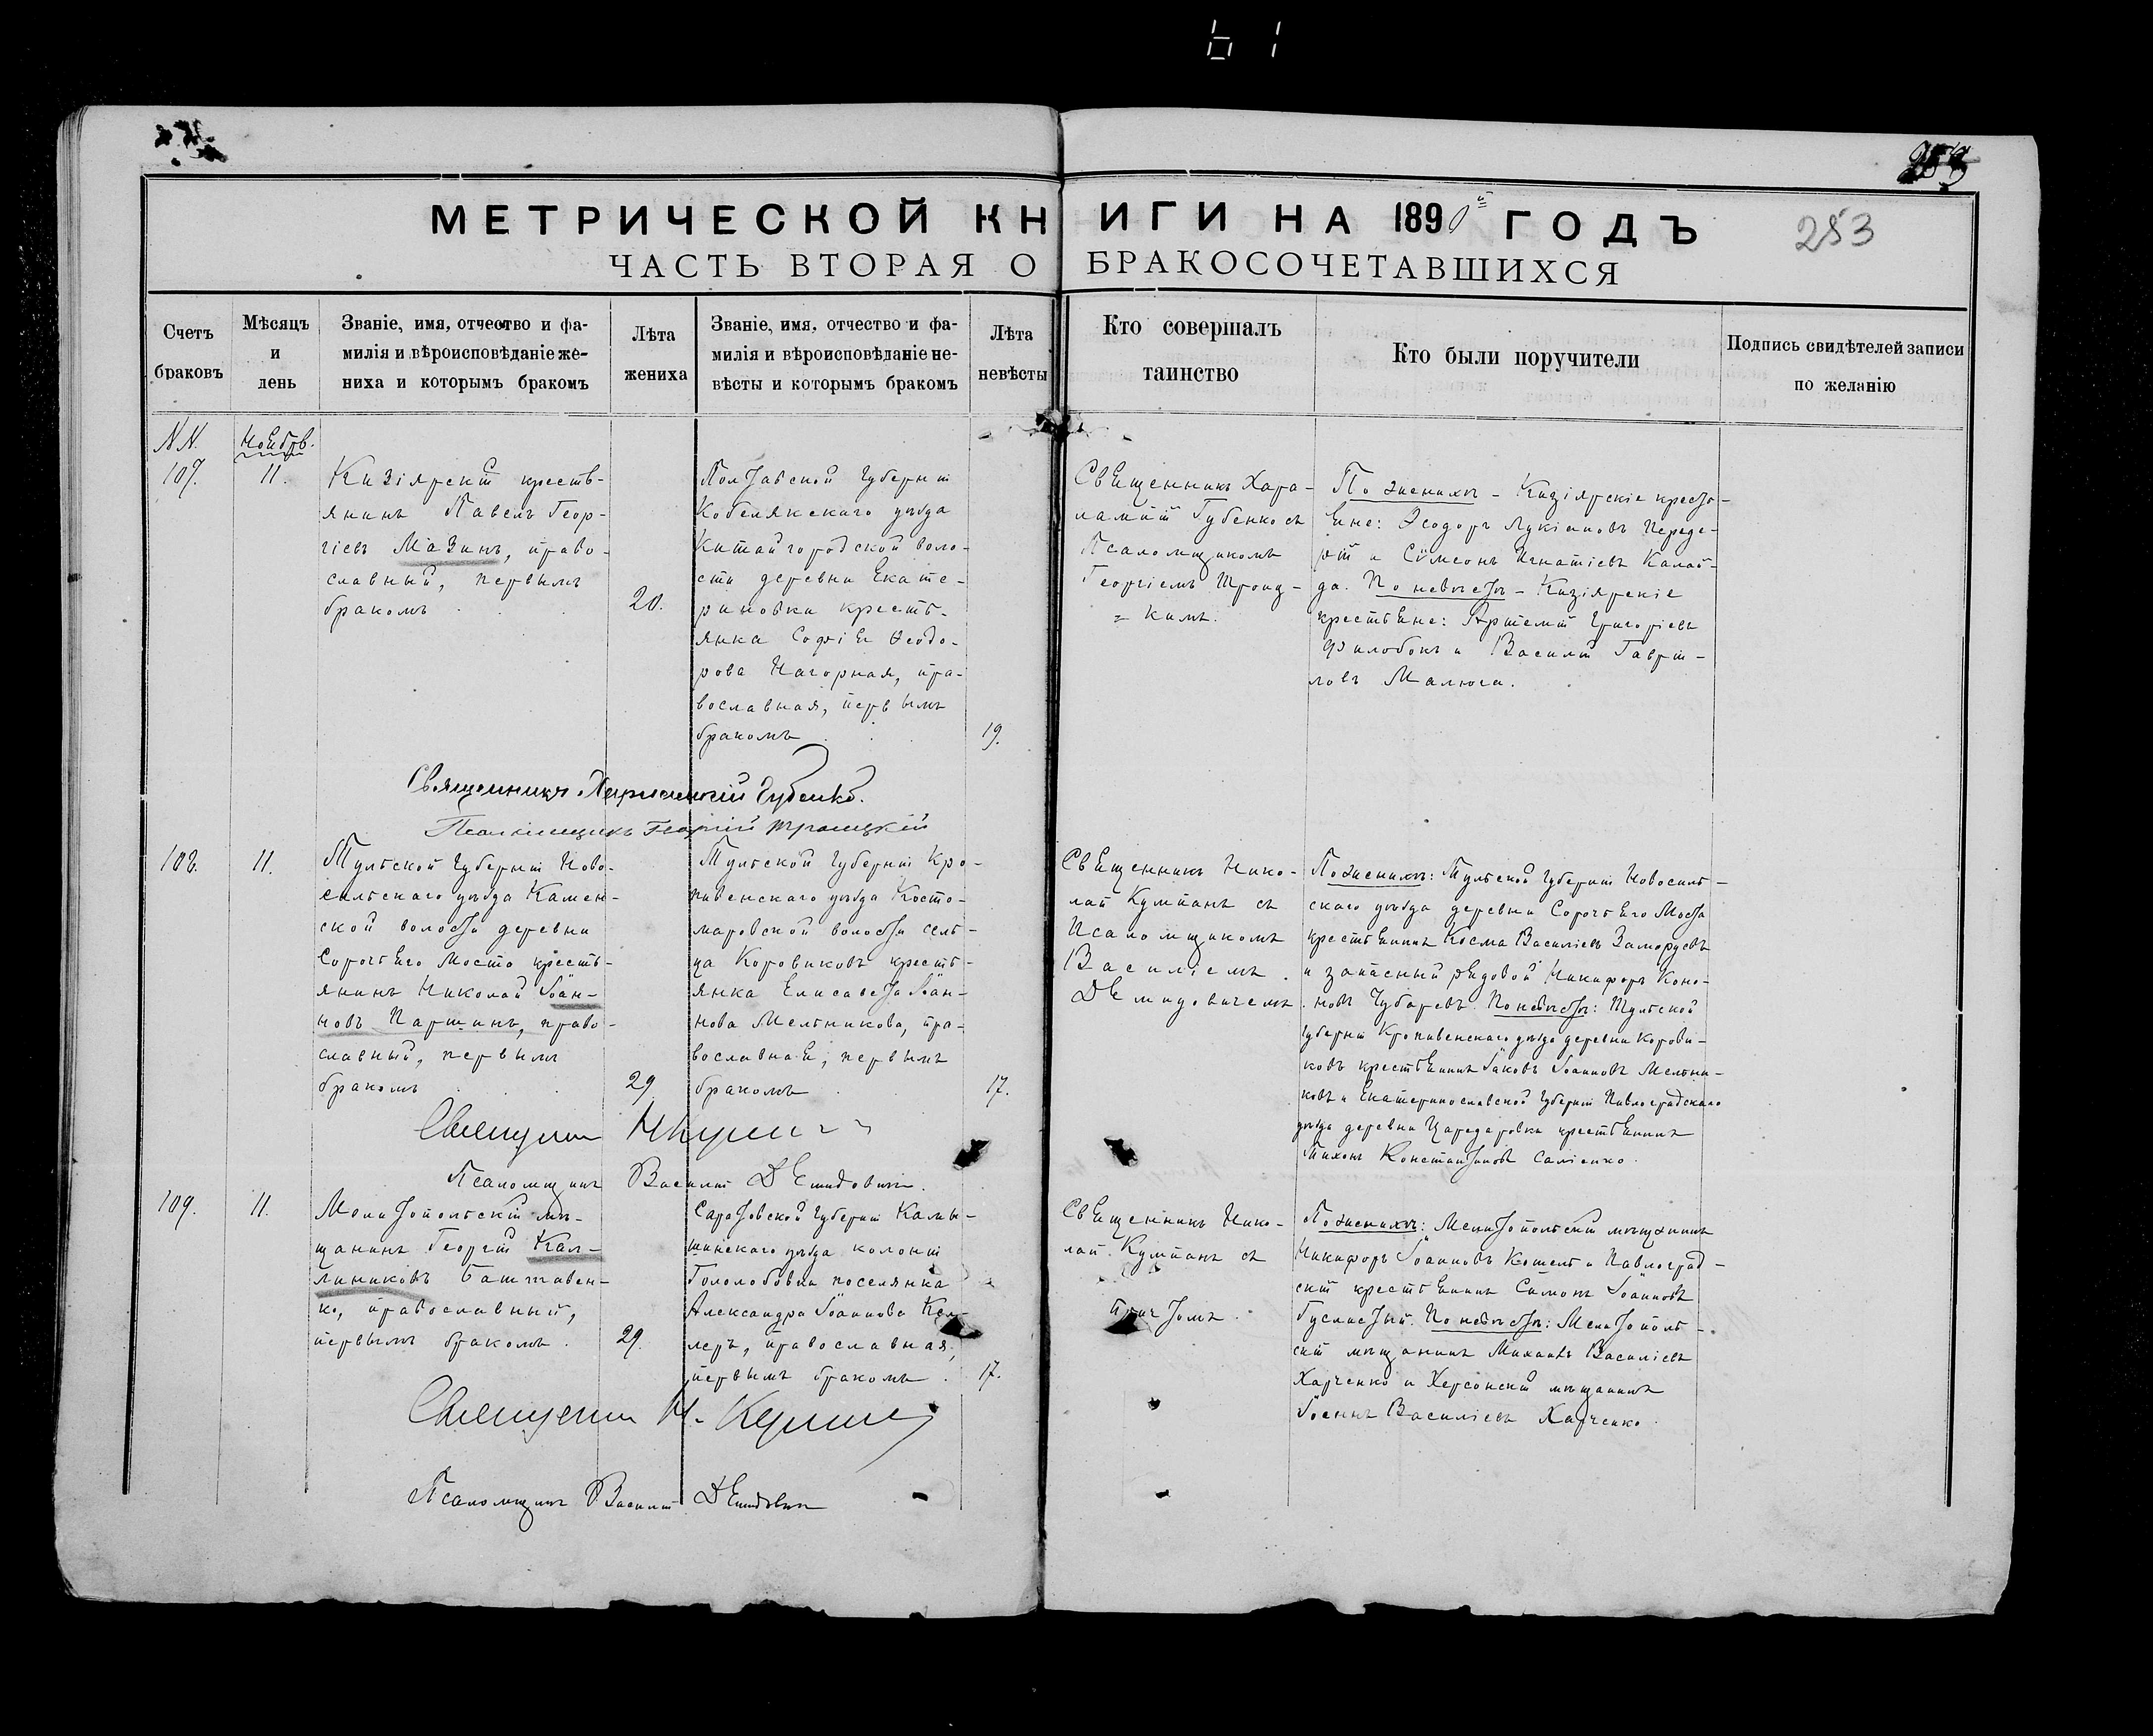 253
МЕТРИЧЕСКОЙ КНИГИ НА 1890й ГОДЪ
253
ЧАСТЬ ВТОРАЯ О БРАКОСОЧЕТАВШИХСЯ
Счетъ
браковъ
Мѣсяцъ
и
день
Званіе, имя, отчество и фа-
милія и вѣроисповѣданіе же-
ниха и которымъ бракомъ
Лѣта
жениха
Званіе, имя, отчество и фа-
милія и вѣроисповѣданіе не-
вѣсты и которымъ бракомъ
Лѣта
невѣсты
Кто совершалъ
таинство
Кто были поручители
Подпись свидѣтелей записи
по желанію
NN.
Ноябрь.
107.
11.
Кизіярскій кресть-
янинъ Павелъ Геор-
гіевъ Мазинъ, право-
славный, первымъ
бракомъ
20.
Полтавской губерніи
Кобелякскаго уѣзда
Китайгородской воло-
сти деревни Екате-
риновки кресть-
янка Софія Ѳеодо-
рова Нагорная, пра-
вославная, первымъ
бракомъ
19.
Священникъ Хара-
лампій Губенко съ
Псаломщикомъ
Георгіемъ Троиц-
= кимъ.
По женихѣ - Кизіярскіе кресть-
яне: Ѳеодоръ Лукіановъ Переде-
рій и Сѵмеонъ Игнатіевъ Калай-
да. По невѣстѣ - Кизіярскіе
крестьяне: Артемій Григоріевъ
Филобокъ и Василій Гаврі-
ловъ Малюга.
Священникъ Харалампій Губенко.
Псаломщикъ Георгій Троицкій
108.
11.
Тульской губерніи Ново-
сильскаго уѣзда Камен-
ской волости деревни
Сорочьяго Моста кресть-
янинъ Николай Іоан-
новъ Паршинъ, право-
славный, первымъ
бракомъ
29
Тульской губерніи Кра-
пивенскаго уѣзда Косто-
маровской волости сель-
ца Коровиковъ кресть-
янка Елисавета Іоан-
нова Мельникова, пра-
вославная, первымъ
бракомъ
17.
Священникъ Нико-
лай Кумпанъ съ
Псаломщикомъ
Василіемъ
Демидовичемъ
По женихѣ: Тульской губерніи Новосиль-
скаго уѣзда деревни Сорочьяго Моста
крестьянинъ Косма Василіевъ Заморуевъ
и запасный рядовой Никифоръ Коно-
новъ Чубаревъ. По невѣстѣ: Тульской
губерніи Крапивенскаго уѣзда деревни Корови-
ковъ крестьянинъ Іаковъ Іоанновъ Мельни-
ковъ и Екатеринославской губерніи Павлоградскаго
уѣзда деревни крестьянинъ
Тихонъ Константиновъ Саліенко.
Священникъ Н. Кумпанъ
Псаломщикъ Василій Демидовичъ.
109.
11.
Мелитопольскій мѣ-
щанинъ Георгій Кал-
линиковъ Баштавен-
ко, православный,
первымъ бракомъ.
29.
Саратовской губерніи Камы-
шинскаго уѣзда колоніи
Гололобовки поселянка
Александра Іоаннова Кел-
леръ, православная,
первымъ бракомъ.
17.
Священникъ Нико-
лай Кумпанъ съ
причтомъ.
По женихѣ: Мелитопольскій мѣщанинъ
Никифоръ Іоанновъ Кошель и Павлоград-
скій крестьянинъ Симонъ Іоанновъ
Гуслистый. По невѣстѣ: Мелитополь-
скій мѣщанинъ Михаилъ Василіевъ
Харченко и Херсонскій мѣщанинъ
Іоаннъ Василіевъ Харченко.
Священникъ Н. Кумпанъ
Псаломщикъ Василій Демидовичъ